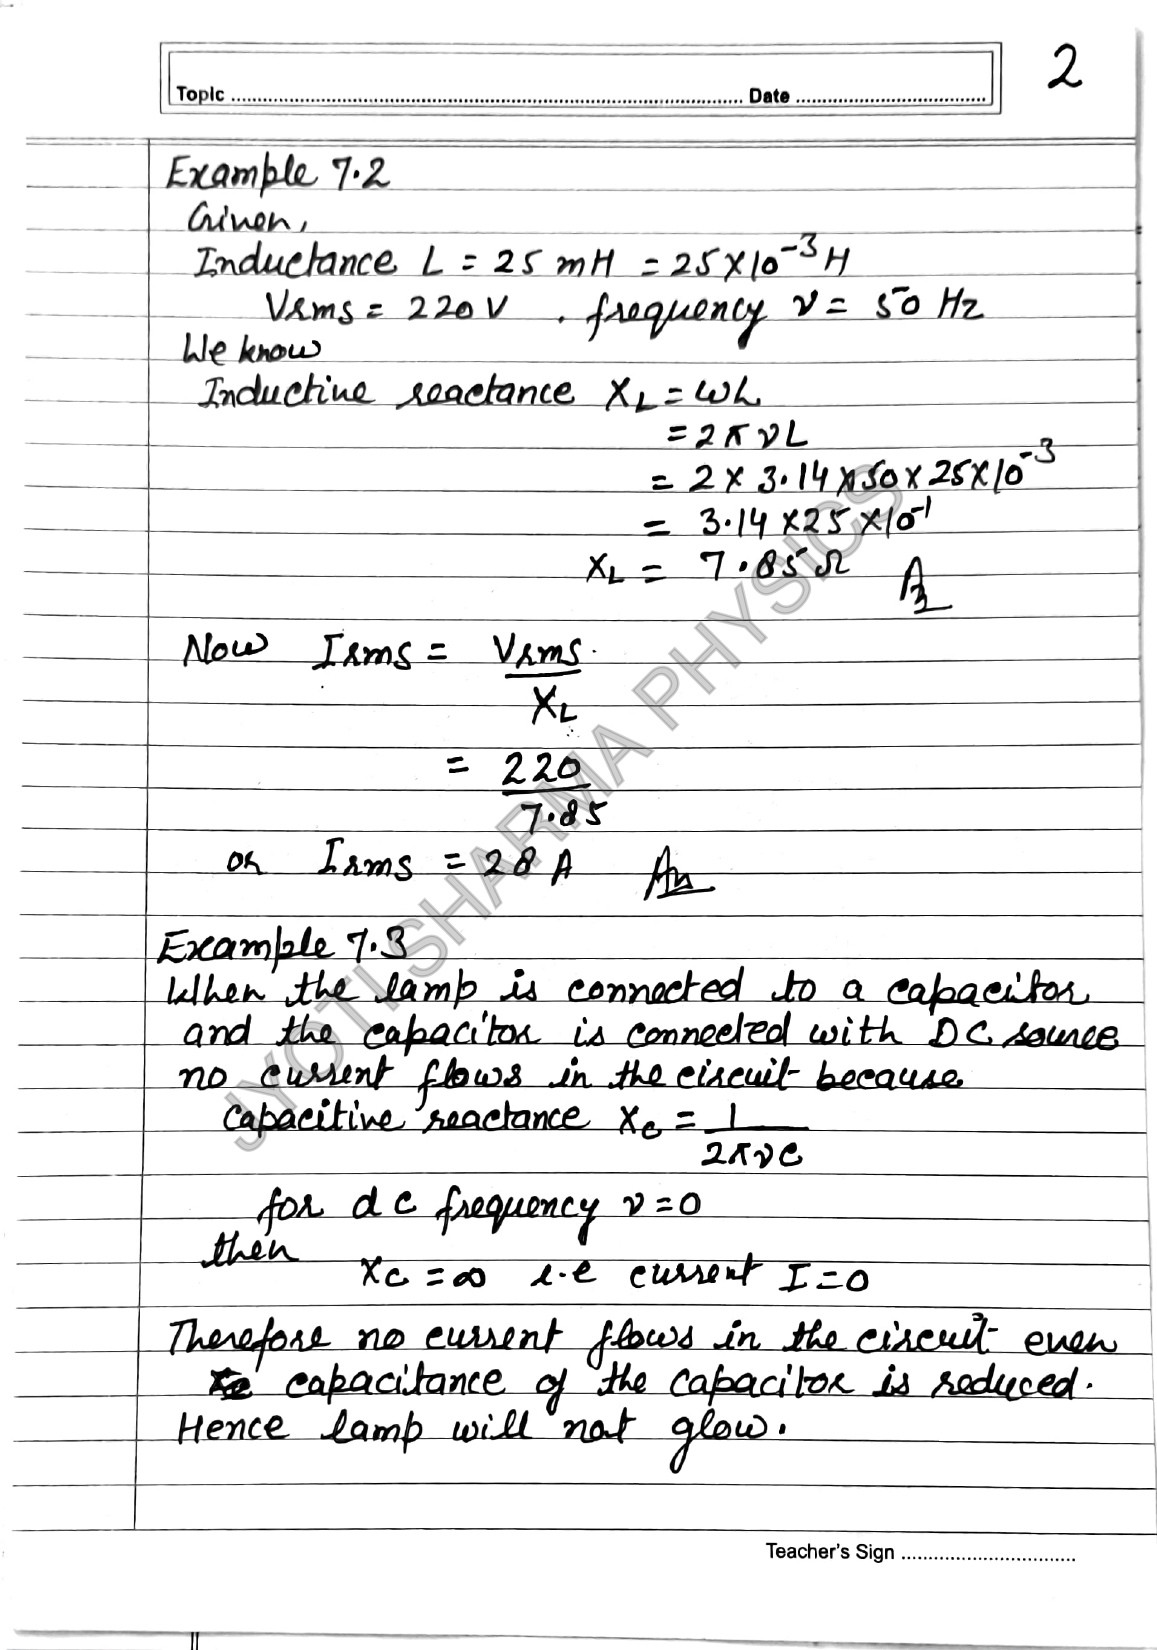 2
Topic ........................ Date ........................
Example 7.2
Given,
Inductance L = 25 mH = 25×10⁻³ H
Vrms = 220 V , frequency ν = 50 Hz
We know
Inductive reactance X_L = ωL
= 2πνL
= 2 × 3.14 × 50 × 25 × 10⁻³
= 3.14 × 25 × 10⁻¹
X_L = 7.85 Ω
Now Irms = Vrms
X_L
= 220
7.85
or Irms = 28 A An
Example 7.3
When the lamp is connected to a capacitor
and the capacitor is connected with DC source
no current flows in the circuit because
capacitive reactance X_C = 1
2πνC
for dc frequency ν = 0
then
X_C = ∞ i.e current I = 0
Therefore no current flows in the circuit even
capacitance of the capacitor is reduced.
Hence lamp will not glow.
Teacher's Sign ........................
JYOTI SHARMA PHYSICS